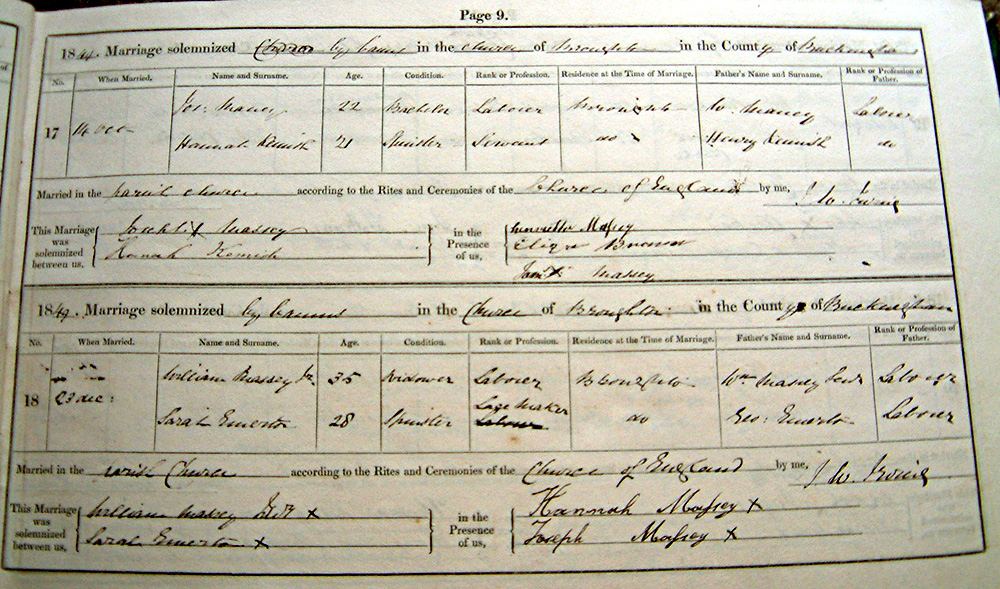 Page 9.
1844. Marriage solemnized by banns in the Church of Broughton in the County of Buckingham
No. When Married. Name and Surname. Age. Condition. Rank or Profession. Residence at the Time of Marriage. Father's Name and Surname. Rank or Profession of Father.
Jos: Massey 22 Bachelor Labourer Broughton W. Massey Labourer
17 14 Oct
Hannah Kemish 21 Spinster Servant do Henry Kemish do
Married in the parish church according to the Rites and Ceremonies of the Church of England by me, J W. Irving
This Marriage was solemnized between us, in the Presence of us,
X Massey
Hannah Kemish
Henrietta Massey
Eliza Brown
X Massey
1849. Marriage solemnized by banns in the Church of Broughton in the County of Buckingham
No. When Married. Name and Surname. Age. Condition. Rank or Profession. Residence at the Time of Marriage. Father's Name and Surname. Rank or Profession of Father.
William Massey Jr 35 Widower Labourer Broughton Wm Massey Senr Labourer
18 23 dec:
Sarah Emerton 28 Spinster Lace Maker do Geo: Emerton Labourer
Married in the parish Church according to the Rites and Ceremonies of the Church of England by me, J W. Irving
This Marriage was solemnized between us, in the Presence of us,
William Massey X
Sarah Emerton X
Hannah Massey X
Joseph Massey X